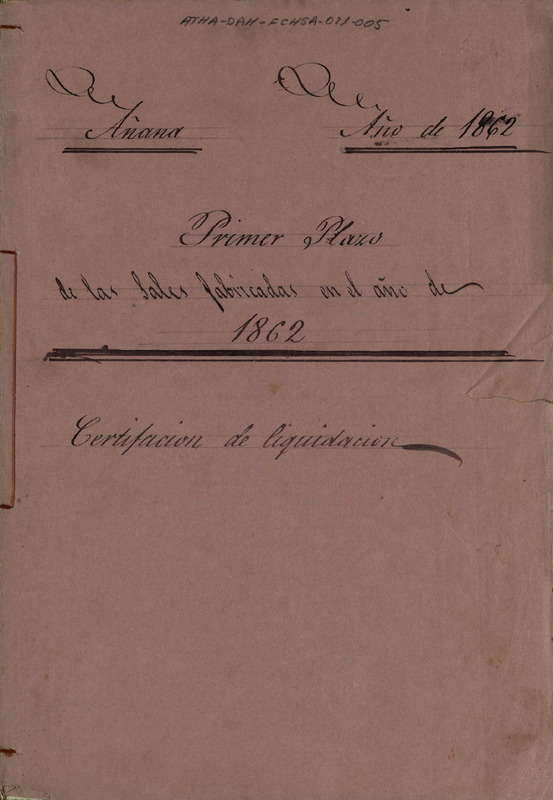 ATHA-DAH-FCHSA-021-005
Añana Año de 1862
Primer Plazo
de las Sales fabricadas en el año de
1862
Certifacion de liquidacion